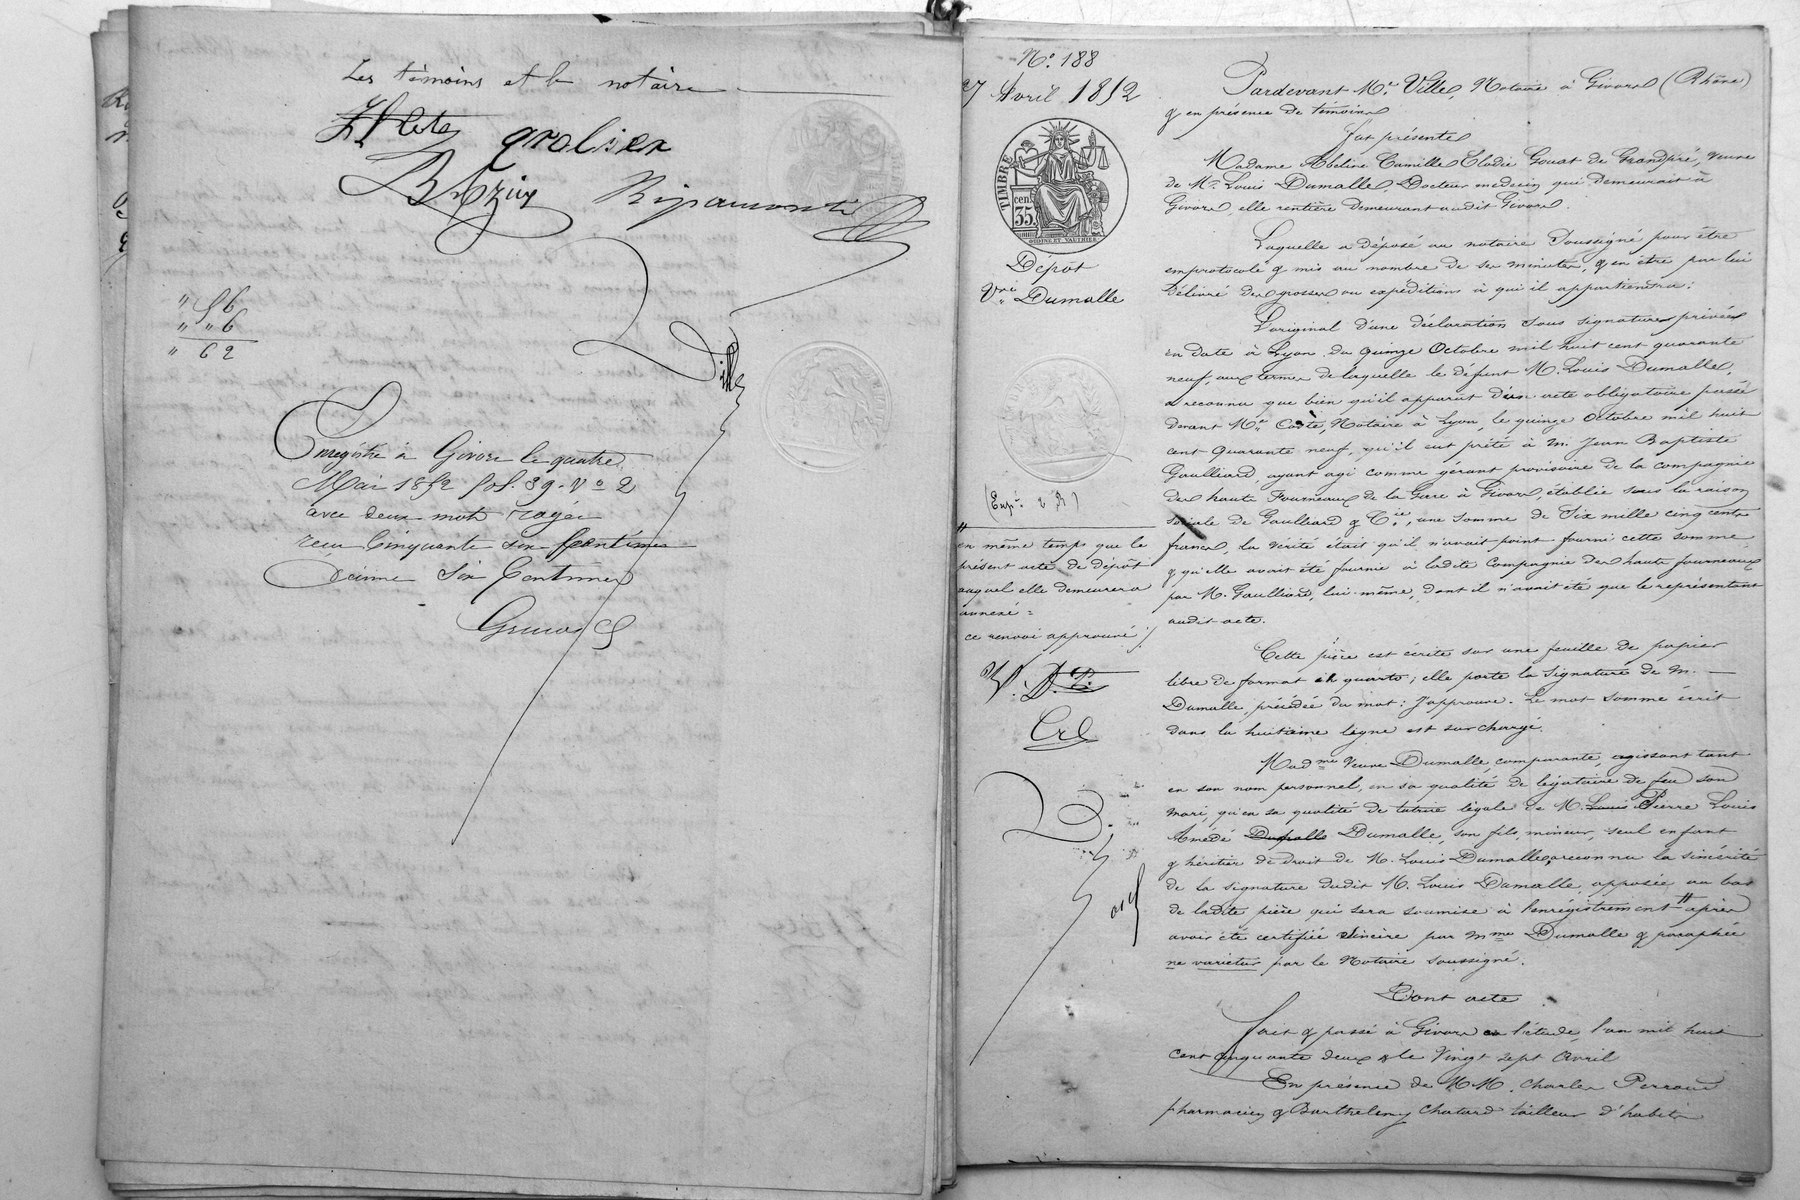 Les témoins et le notaire
grolier
Ville
" 56
" " 6
" 62
Enregistré à Givors le quatre
Mai 1852 fol. 39. Vo 2
avec deux mots rayés
reçu Cinquante six Centimes
Décime Six Centimes
No. 188
27 Avril 1852
TIMBRE
35 cen.
OUDINÉ ET VAUTHIER
Dépôt
Vve Dumalle
en même temps que le
présent acte de dépôt
auquel elle demeurera
annexé =
ce renvoi approuvé
V. D.
Pardevant Me. Ville, Notaire à Givors (Rhône)
& en présence de témoins
fut présente
Madame Abeline Camille Elodie Gouat de Grandpré, veuve
de Mr. Louis Dumalle Docteur médecin qui demeurait à
Givors, elle rentière demeurant audit Givors.
Laquelle a déposé au notaire soussigné pour être
emprotocolé & mis au nombre de ses minutes, & en être par lui
délivré des grosses ou expéditions à qui il appartiendra:
L'original d'une déclaration sous signatures privées
en date à Lyon du quinze Octobre mil huit cent quarante
neuf, aux termes de laquelle le défunt M. Louis Dumalle,
a reconnu que bien qu'il apparut d'un acte obligatoire passé
devant Me. Coste, Notaire à Lyon, le quinze Octobre mil huit
cent quarante neuf, qu'il eut prêté à M. Jean Baptiste
Gaulliard, ayant agi comme gérant provisoire de la compagnie
des hauts Fourneaux de la Gare à Givors, établie sous la raison
sociale de Gaulliard & Cie, une somme de Six mille cinq cents
francs, la vérité était qu'il n'avait point fourni cette somme
& qu'elle avait été fournie à ladite Compagnie des hauts fourneaux
par M. Gaulliard, lui-même, dont il n'avait été que le représentant
audit acte.
Cette pièce est écrite sur une feuille de papier
libre de format in quarto; elle porte la signature de M.
Dumalle, précédée du mot: J'approuve. Le mot somme écrit
dans la huitième ligne est surchargé.
Madme Veuve Dumalle, comparante, agissant tant
en son nom personnel, en sa qualité de légataire de feu son
mari, qu'en sa qualité de tutrice légale de M. Louis Pierre Louis
Amédé Dumalle, son fils mineur, seul enfant
& héritier de droit de M. Louis Dumalle, a reconnu la sincérité
de la signature dudit M. Louis Dumalle, apposée au bas
de ladite pièce qui sera soumise à l'enrégistrement # après
avoir été certifiée sincère par Mme Dumalle & paraphée
ne varietur par le Notaire soussigné.
Dont acte
fait & passé à Givors en l'étude, l'an mil huit
cent cinquante deux & le Vingt sept Avril
En présence de MM. Charles Perroud
pharmacien & Barthelemy Chatard tailleur d'habits